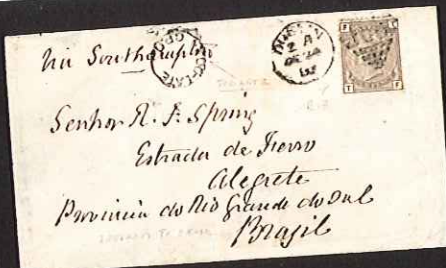 Via Southampton
DUBLIN
2 A
82
Senhor R. F. Spring
Estrada de Ferro
Alegrete
Provincia do Rio Grande do Sul
Brazil